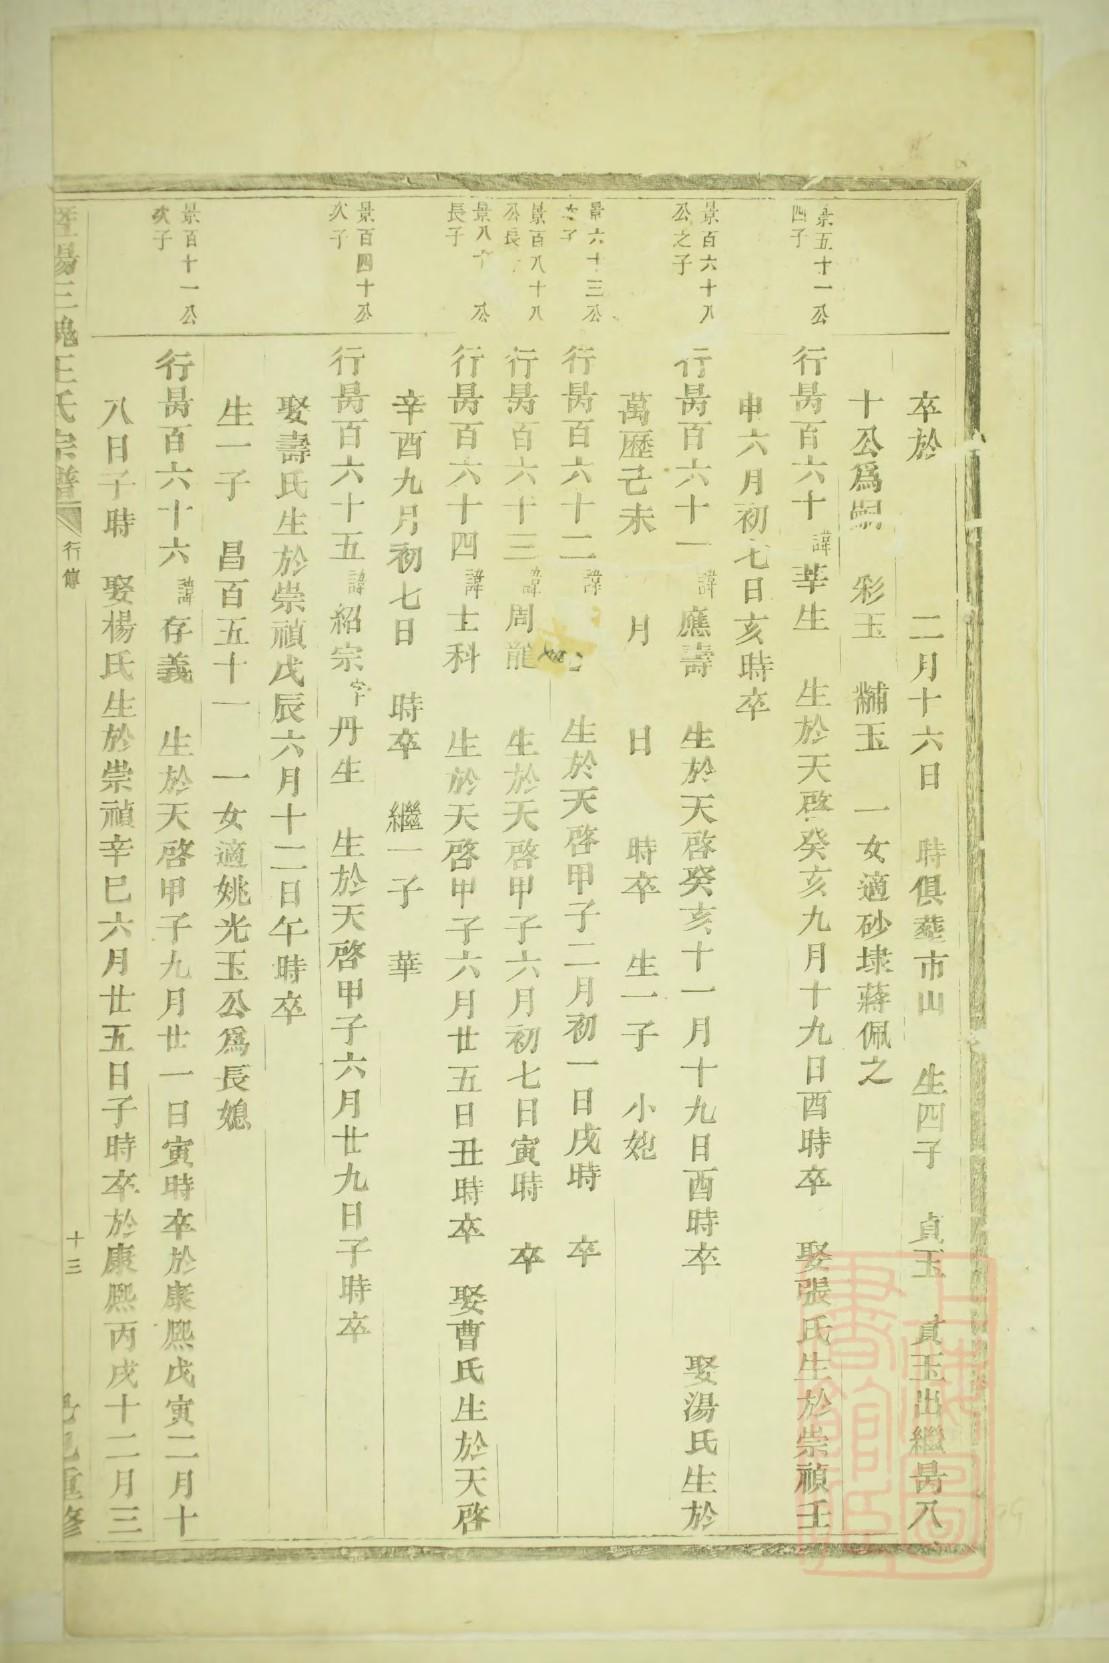 卒於　二月十六日　時俱塟市山　生四子　貞玉　貢玉出繼勗八
十公爲嗣　彩玉　黼玉　一女適砂埭蔣佩之
景五十一公
四子
行勗百六十諱莘生　生於天啓癸亥九月十九日酉時卒　娶張氏生於崇禎壬
申六月初七日亥時卒
景百六十八
公之子
行勗百六十一諱應壽　生於天啓癸亥十一月十九日酉時卒　娶湯氏生於
萬歷己未　月　日　時卒　生一子　小㚿
景六十三公
之子
行勗百六十二諱　生於天啓甲子二月初一日戌時　卒
景百八十八
公長
行勗百六十三諱周龍　生於天啓甲子六月初七日寅時　卒
景八十　公
長子
行勗百六十四諱士科　生於天啓甲子六月廿五日丑時卒　娶曹氏生於天啓
辛酉九月初七日　時卒　繼一子　華
景百四十公
次子
行勗百六十五諱紹宗字丹生　生於天啓甲子六月廿九日子時卒
娶壽氏生於崇禎戊辰六月十二日午時卒
生一子　昌百五十一　一女適姚光玉公爲長媳
景百十一公
次子
行勗百六十六諱存義　生於天啓甲子九月廿一日寅時卒於康熙戊寅二月十
八日子時　娶楊氏生於崇禎辛巳六月廿五日子時卒於康熙丙戌十二月三
暨陽三槐王氏宗譜　行傳　十三　重修
上海圖書館藏